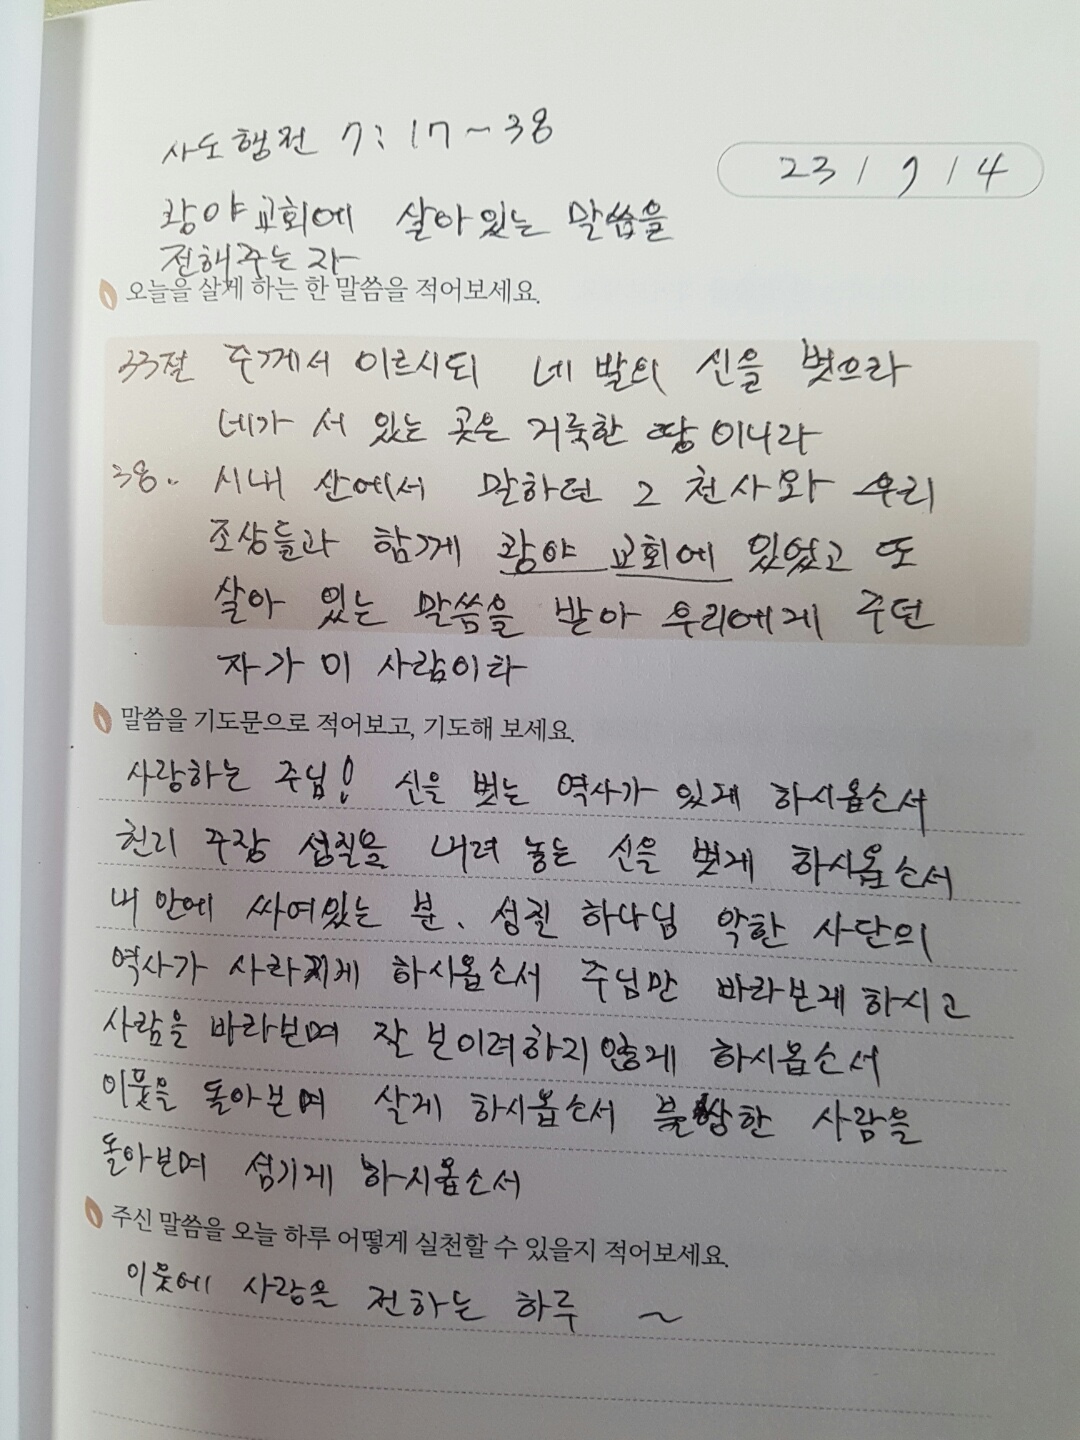 사도행전 7:17~38
23 / 9 / 4
광야교회에 살아있는 말씀을
전해주는 자
오늘을 살게 하는 한 말씀을 적어보세요.
33절 주께서 이르시되 네 발의 신을 벗으라
네가 서 있는 곳은 거룩한 땅이니라
38.. 시내 산에서 말하던 그 천사와 우리
조상들과 함께 광야 교회에 있었고 또
살아 있는 말씀을 받아 우리에게 주던
자가 이 사람이라
말씀을 기도문으로 적어보고, 기도해 보세요.
사랑하는 주님! 신을 벗는 역사가 있게 하시옵소서
헌리 주장 성질을 내려 놓는 신을 벗게 하시옵소서
내 안에 싸여있는 분, 성질 하나님 악한 사단의
역사가 사라지게 하시옵소서 주님만 바라보게 하시고
사람을 바라보며 잘 보이려하지 않게 하시옵소서
이웃을 돌아보며 살게 하시옵소서 불쌍한 사람을
돌아보며 섬기게 하시옵소서
주신 말씀을 오늘 하루 어떻게 실천할 수 있을지 적어보세요.
이웃에 사랑을 전하는 하루 ~